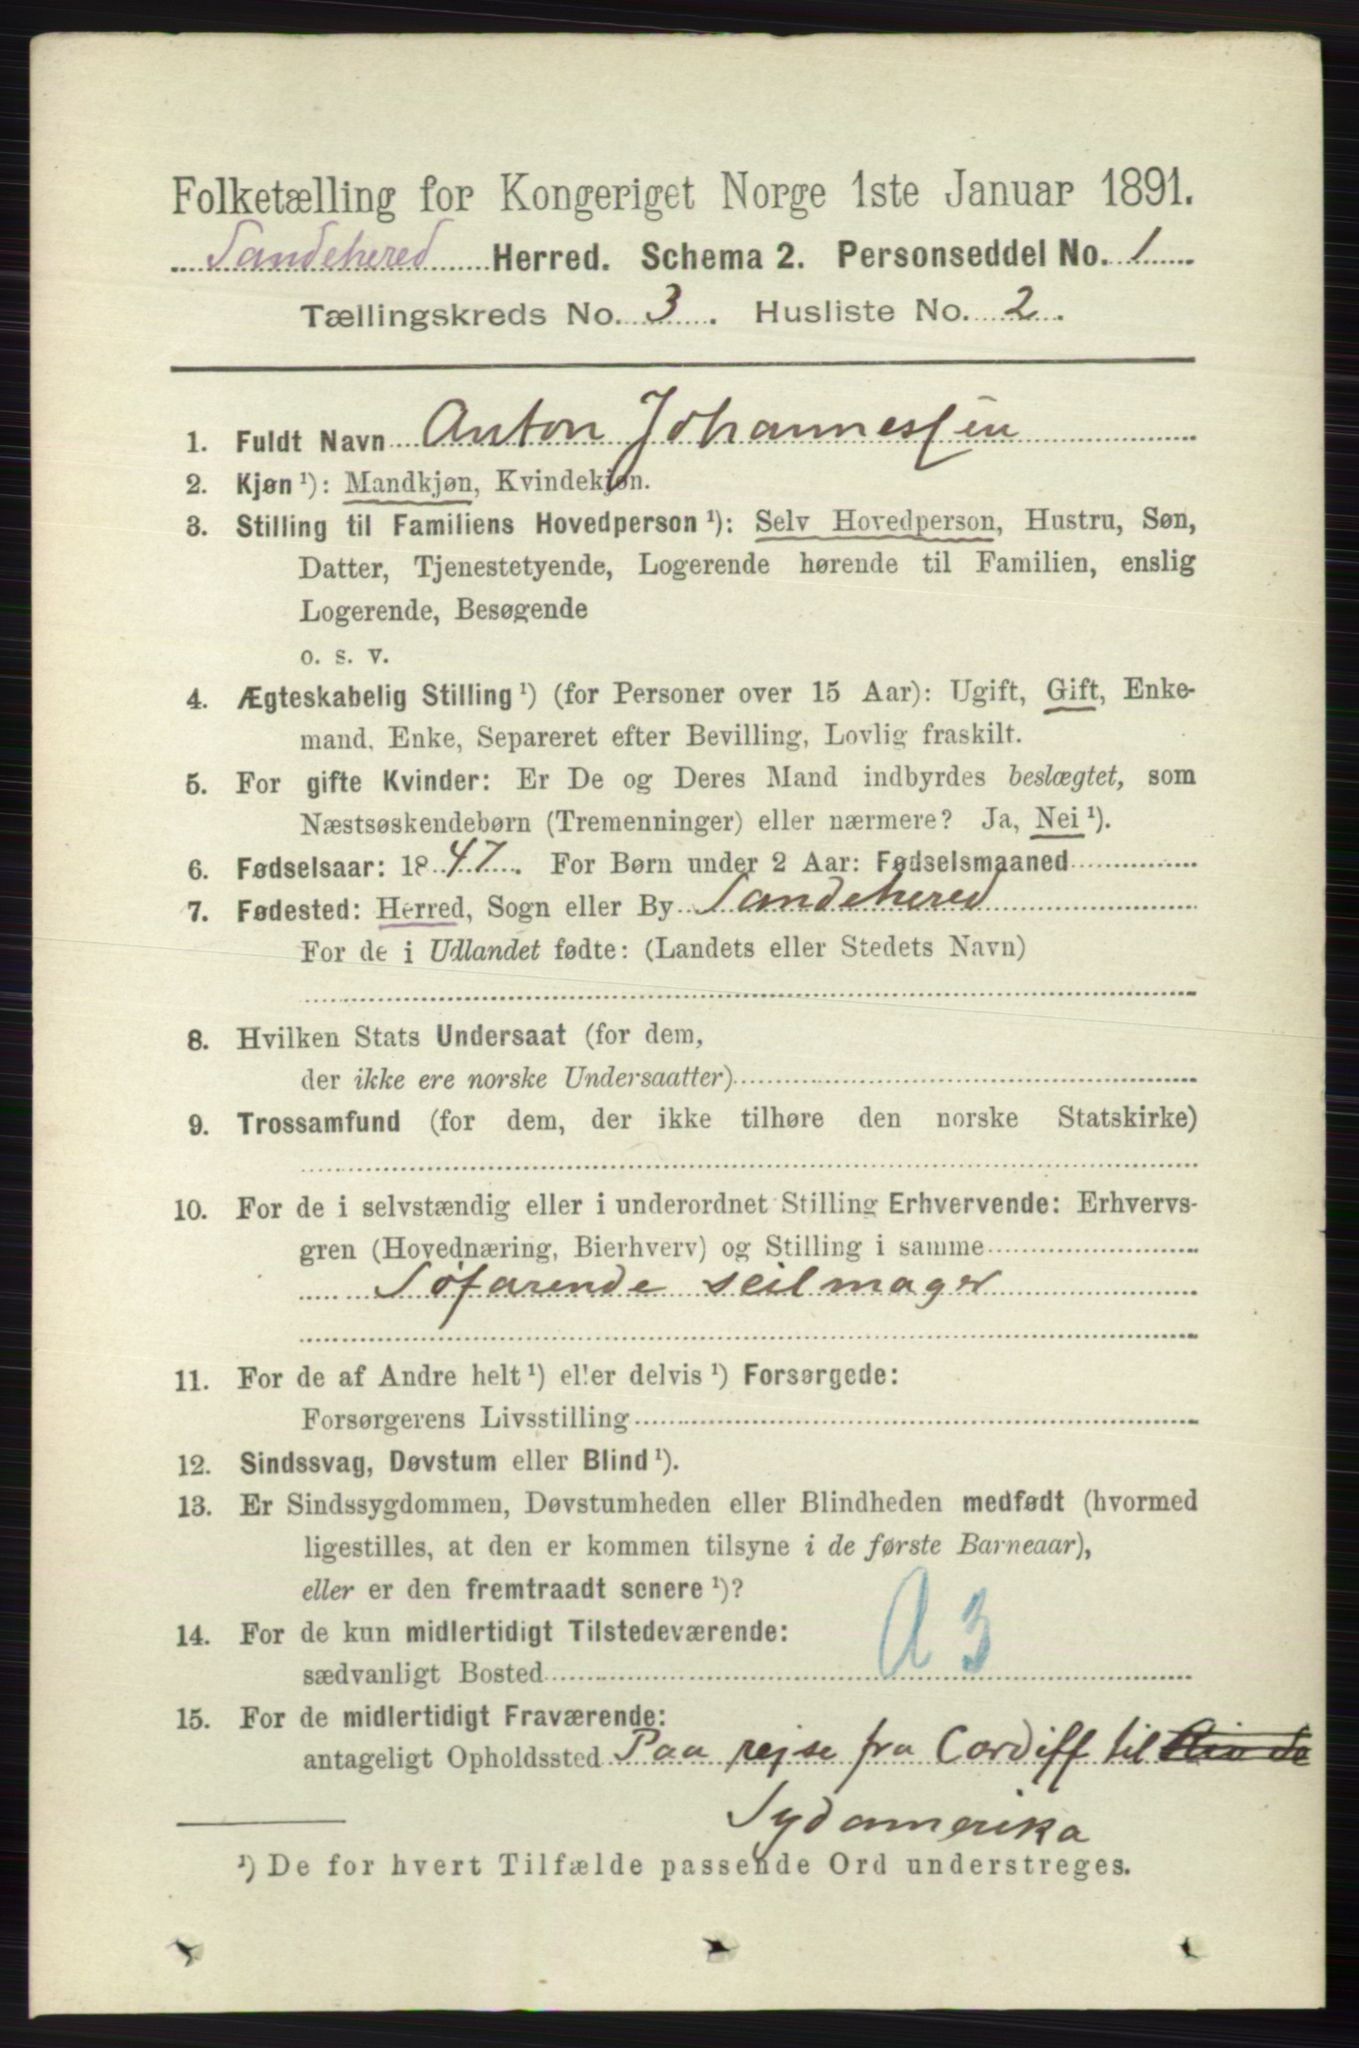 Folketælling for Kongeriget Norge 1ste Januar 1891.
Sandehered Herred. Schema 2. Personseddel No. 1
Tællingskreds No. 3. Husliste No. 2.
1. Fuldt Navn Anton Johannessen
2. Kjøn ¹): Mandkjøn, Kvindekjøn.
3. Stilling til Familiens Hovedperson ¹): Selv Hovedperson, Hustru, Søn,
Datter, Tjenestetyende, Logerende hørende til Familien, enslig
Logerende, Besøgende
o. s. v.
4. Ægteskabelig Stilling ¹) (for Personer over 15 Aar): Ugift, Gift, Enke-
mand, Enke, Separeret efter Bevilling, Lovlig fraskilt.
5. For gifte Kvinder: Er De og Deres Mand indbyrdes beslægtet, som
Næstsøskendebørn (Tremenninger) eller nærmere? Ja, Nei ¹).
6. Fødselsaar: 1847. For Børn under 2 Aar: Fødselsmaaned
7. Fødested: Herred, Sogn eller By Sandehered
For de i Udlandet fødte: (Landets eller Stedets Navn)
8. Hvilken Stats Undersaat (for dem,
der ikke ere norske Undersaatter)
9. Trossamfund (for dem, der ikke tilhøre den norske Statskirke)
10. For de i selvstændig eller i underordnet Stilling Erhvervende: Erhvervs-
gren (Hovednæring, Bierhverv) og Stilling i samme
Søfarende seilmager
11. For de af Andre helt ¹) eller delvis ¹) Forsørgede:
Forsørgerens Livsstilling
12. Sindssvag, Døvstum eller Blind ¹).
13. Er Sindssygdommen, Døvstumheden eller Blindheden medfødt (hvormed
ligestilles, at den er kommen tilsyne i de første Barneaar),
eller er den fremtraadt senere ¹)?
14. For de kun midlertidigt Tilstedeværende:
sædvanligt Bosted
A 3
15. For de midlertidigt Fraværende:
antageligt Opholdssted Paa rejse fra Cardiff til Rio de
Sydamerika
¹) De for hvert Tilfælde passende Ord understreges.